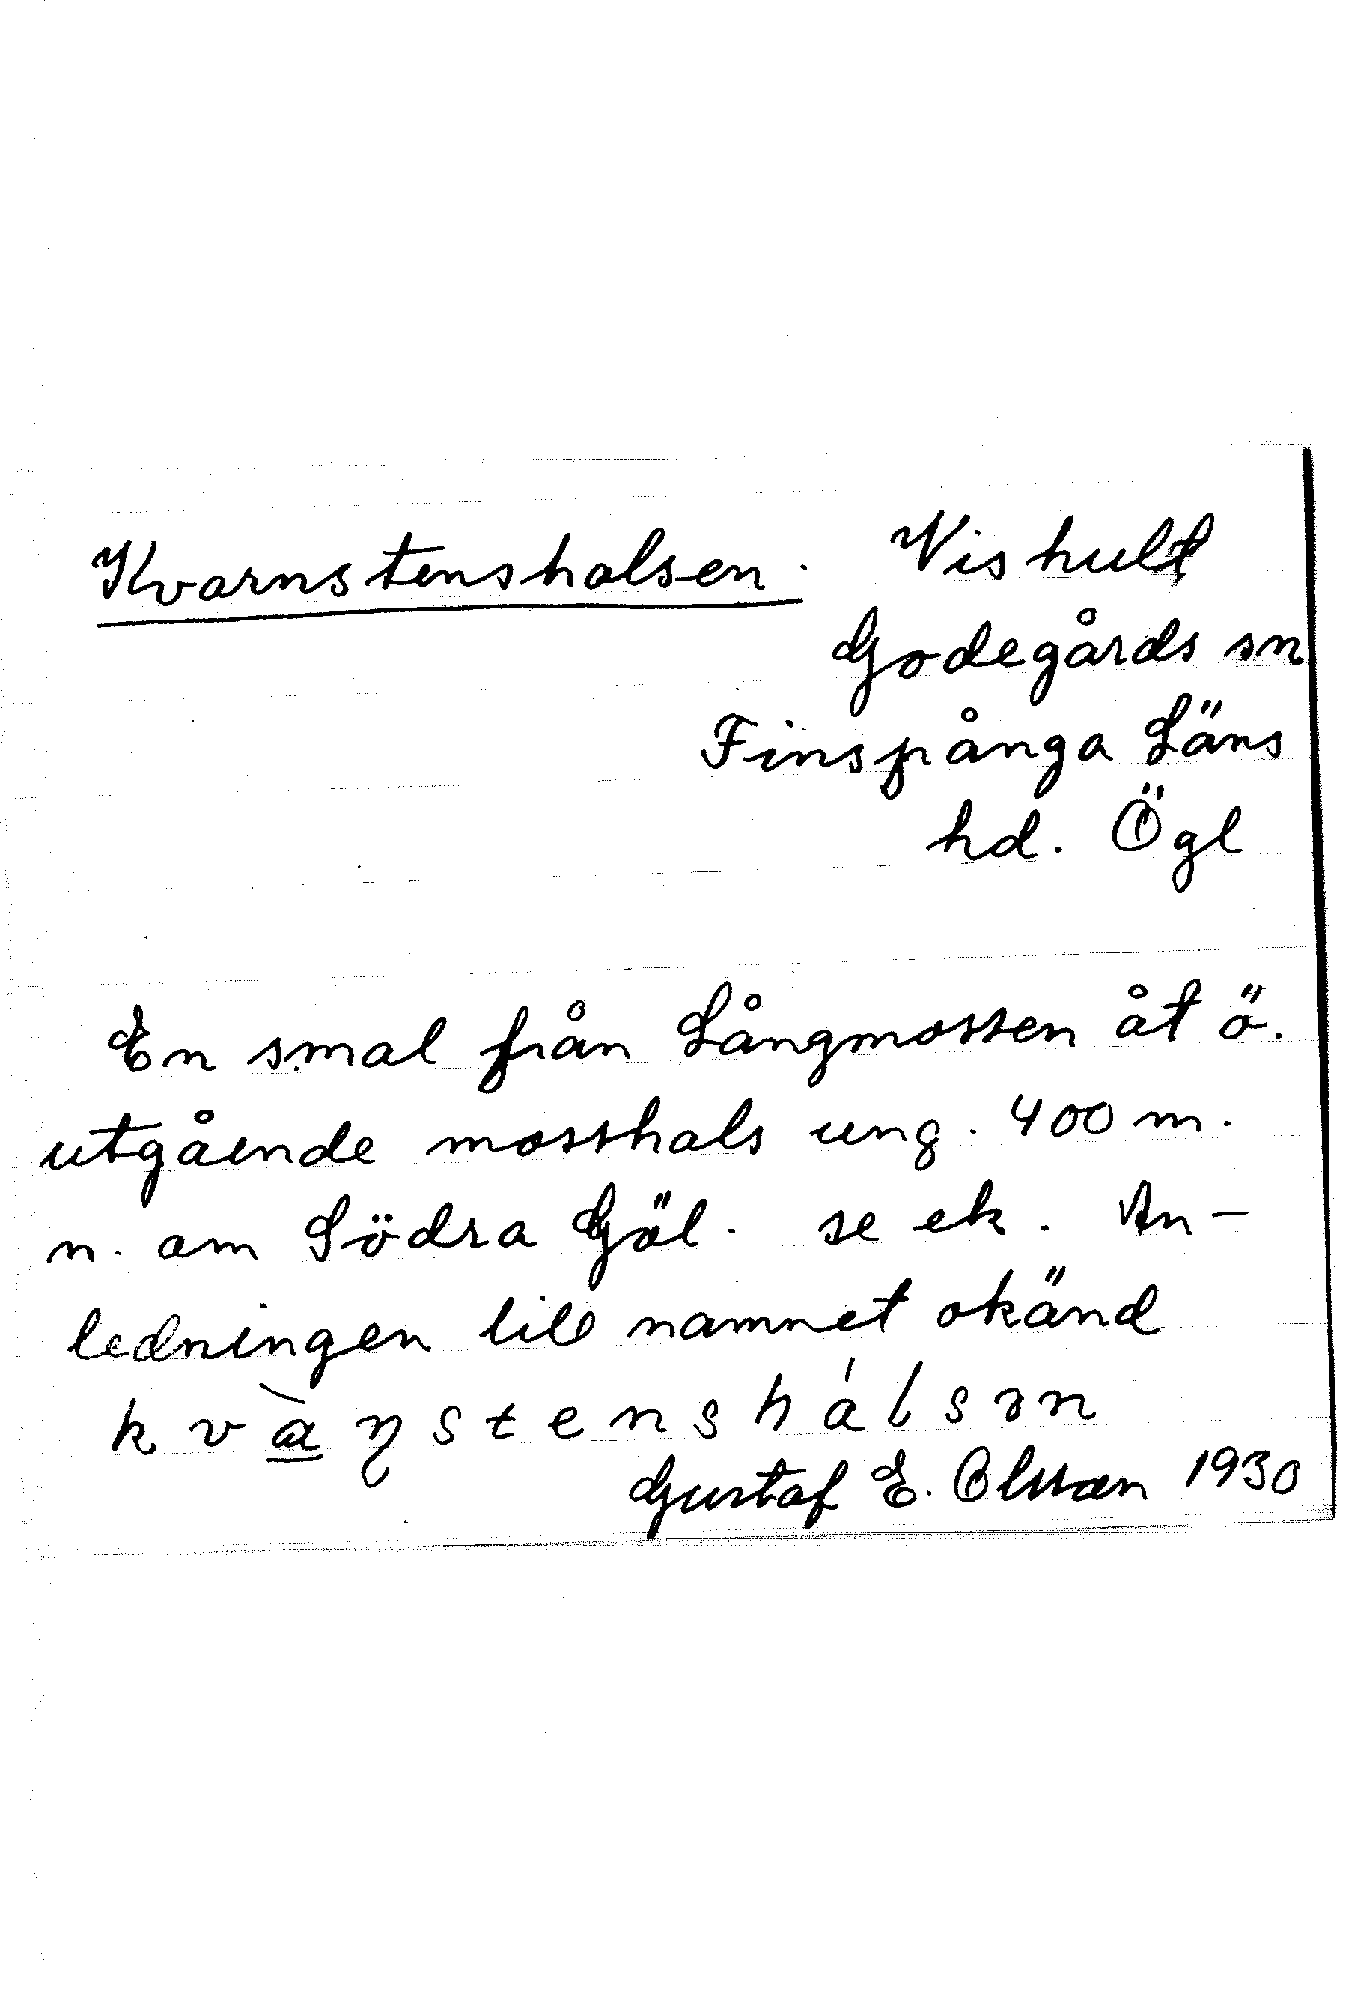 Kvarnstenshalsen. Vishult
Godegårds sn
Finspånga Läns
hd. Ögl
En smal från Långmossen åt ö.
utgående mosshals ung. 400 m.
n. om Södra Göl. se ek. An-
ledningen till namnet okänd
kvàɳstenshálsən
Gustaf E. Olsson 1930